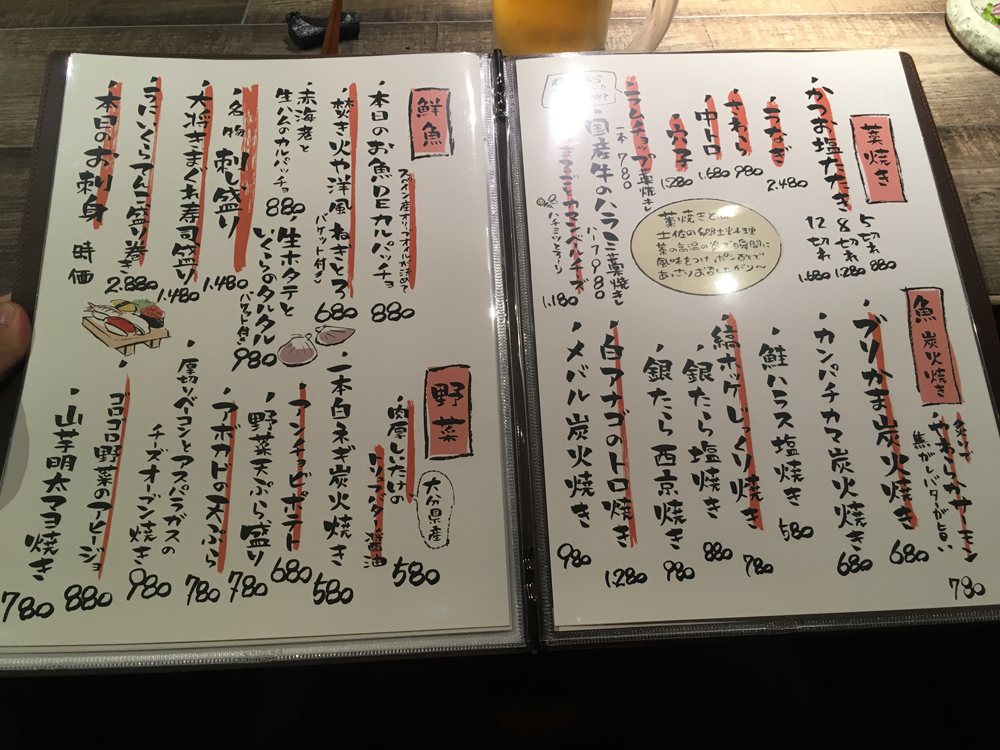 藁焼き
・かつお塩たたき
5切れ 880
8切れ 1.280
12切れ 1.680
・うなぎ 2.480
・さわら 980
・中トロ 1.680
・穴子 1.280
・ラムチョップ藁焼き
一本 780
国産牛のハラミ藁焼き
ハーフ 980
カマンベールチーズ
ハチミツとナッツ
1.180
藁焼きとは
土佐の郷土料理
藁の高温の炎で瞬間に
風味をつけ、ポン酢とで
魚炭火焼き
やわらかサーモン
焦がしバターが旨い
780
・ブリかま炭火焼き 680
・カンパチカマ炭火焼き 680
・鮭ハラス塩焼き 580
・縞ホッケじっくり焼き 780
・銀たら塩焼き 880
・銀たら西京焼き 980
・白アナゴのトロ焼き 1.280
・メバル炭火焼き 980
鮮魚
・本日のお魚DEカルパッチョ 880
・焚き火や洋風ねぎとろ
バケット付き
680
・赤海老と
生ハムのカルパッチョ
880
・生ホタテと
いくらのタルタル
バケット付き
980
・名物 刺し盛り 1.480
・大将きまぐれ寿司盛り 1.480
・うにいくらてんこ盛り巻き 2.880
・本日のお刺身 時価
野菜
大分県産
・肉厚しいたけの
トリュフバター醤油
580
・一本白ネギ炭火焼き 580
・アンチョビポテト 680
・野菜天ぷら盛り 780
・アボカドの天ぷら 780
・厚切りベーコンとアスパラガスの
チーズオーブン焼き
980
・ゴロゴロ野菜のアヒージョ 880
・山芋明太マヨ焼き 780